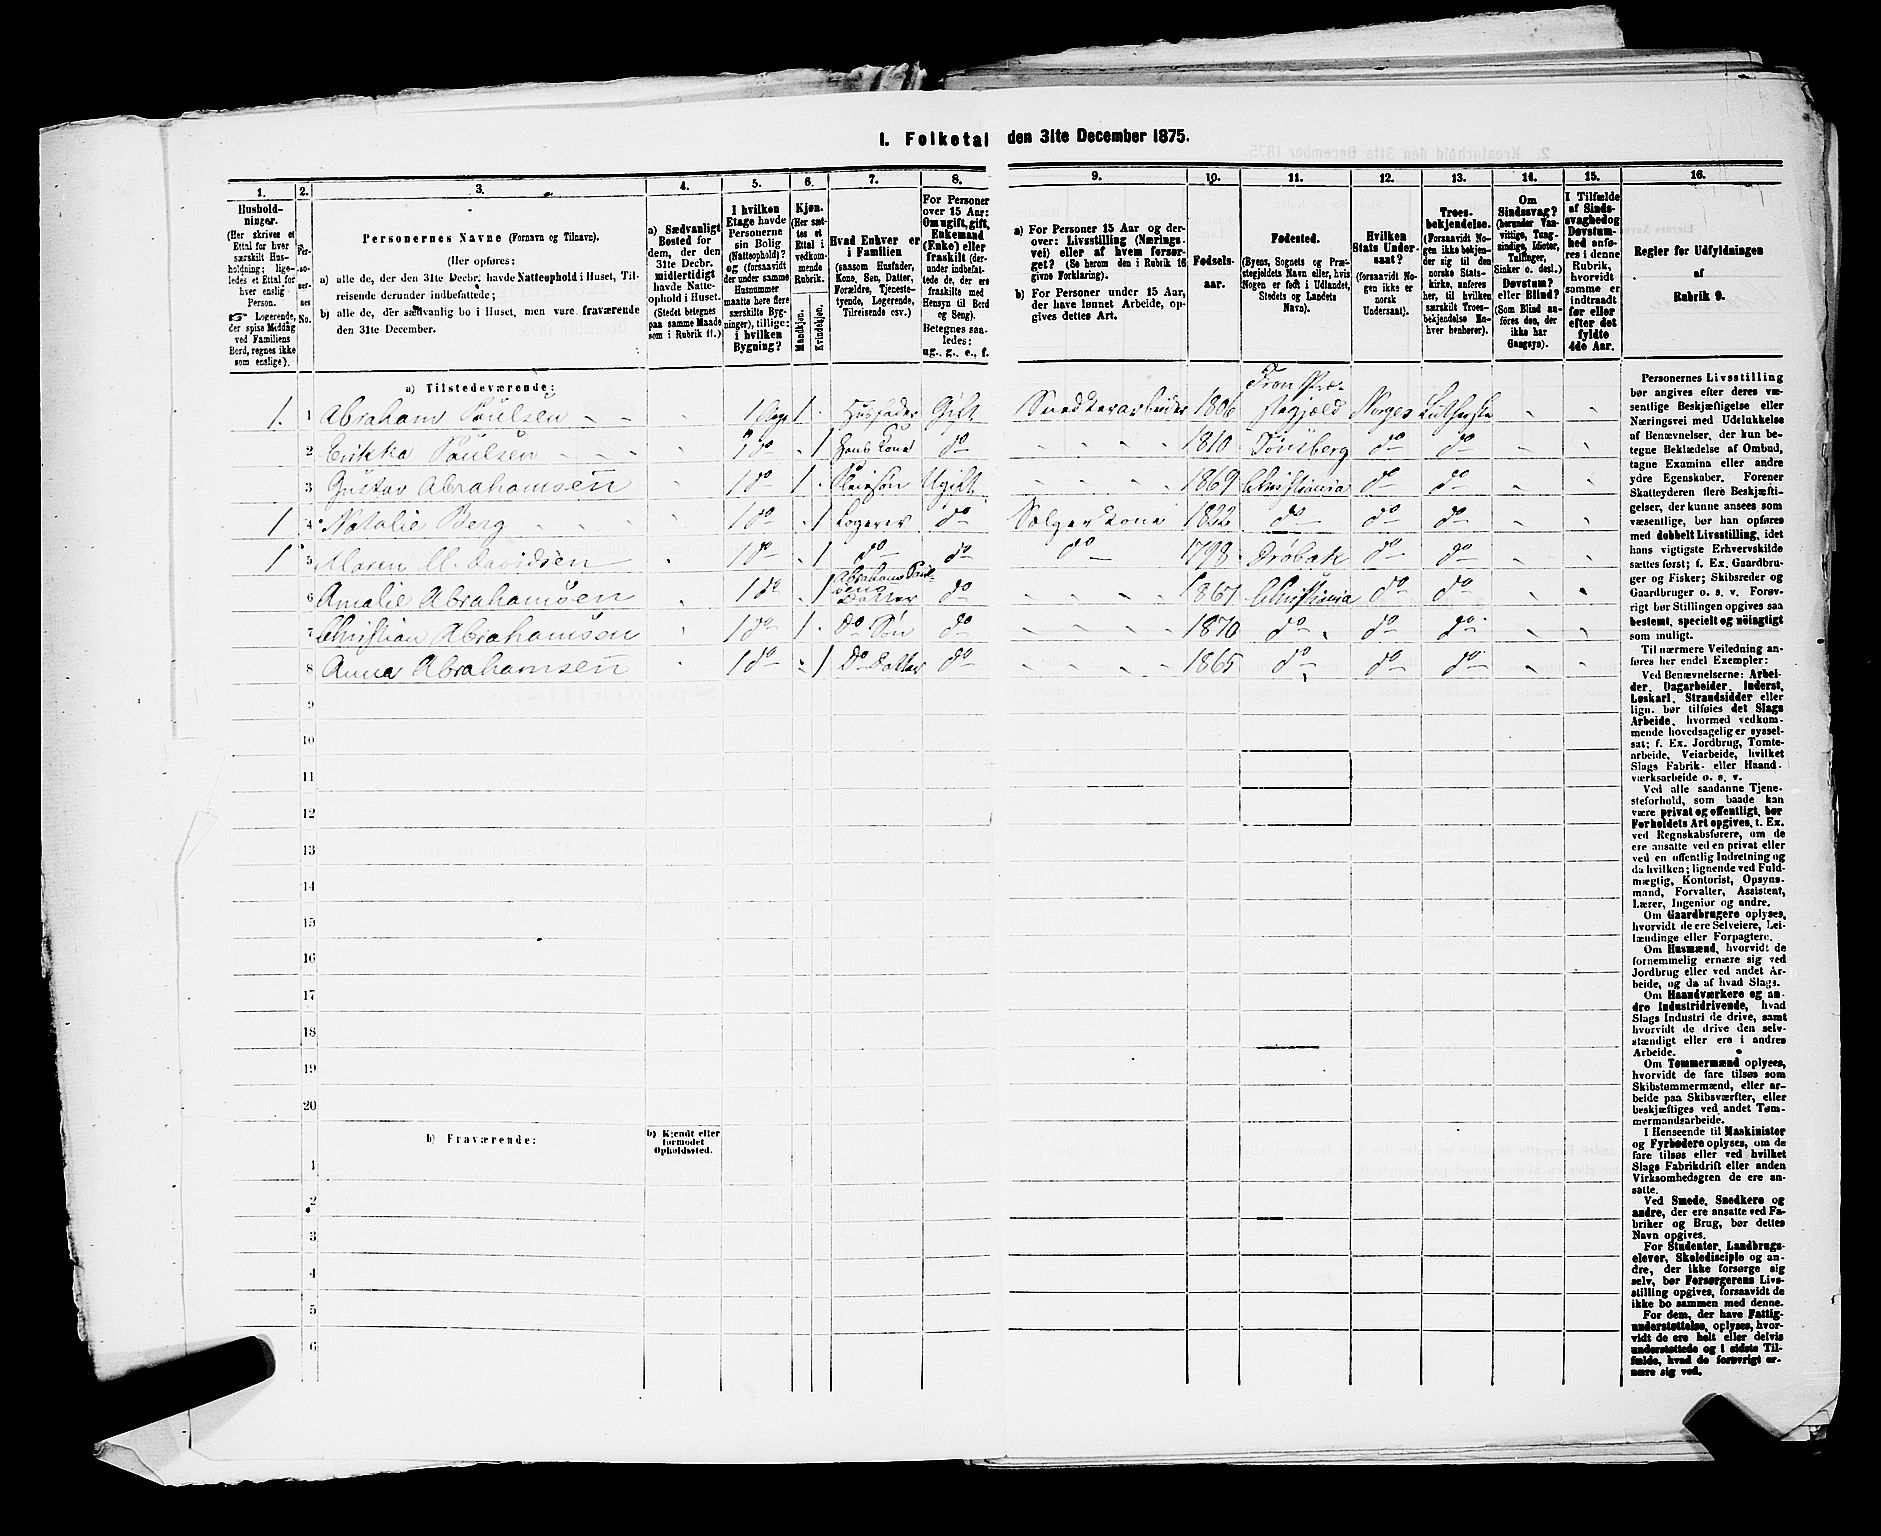 I. Folketal den 31te December 1875.
1. 2. 3. 4. 5. 6. 7. 8. 9. 10. 11. 12. 13. 14. 15. 16.
Hushold-
ninger.
(Her skrives et
Ettal for hver
særskilt Hus-
holdning; lige-
ledes et Ettal for
hver enslig
Person.
☞ Logerende,
der spise Middag
ved Familiens
Bord, regnes ikke
som enslige).
Per-
so-
ner-
nes
No.
Personernes Navne (Fornavn og Tilnavn).
(Her opføres:
a) alle de, der den 31te Decbr. havde Natteophold i Huset, Til-
reisende derunder indbefattede;
b) alle de, der sædvanlig bo i Huset, men vare fraværende
den 31te December.
a) Sædvanligt
Bosted for
dem, der den
31te Decbr.
midlertidigt
havde Natte-
ophold i Huset.
(Stedet betegnes
paa samme Maade
som i Rubrik 11.)
I hvilken
Etage havde
Personerne
sin Bolig
(Natteophold)?
og (forsaavidt
der under samme
Husnummer
maatte here flere
særskilte Byg-
ninger), tillige:
i hvilken
Bygning?
Kjøn.
(Her sæt-
tes et
Ettal i
vedkom-
mende
Rubrik.
Mandkjøn.
Kvindekjøn.
Hvad Enhver er
i Familien
(saasom Husfader,
Kone, Søn, Datter,
Forældre, Tjeneste-
tyende, Logerende,
Tilreisende osv.)
For Personer
over 15 Aar:
Om ugift, gift,
Enkemand
(Enke) eller
fraskilt (der-
under indbefat-
tede de, der ere
fraskilte med
Hensyn til Bord
og Seng).
Betegnes saa-
ledes:
ug., g., e., f.
a) For Personer 15 Aar og der-
over: Livsstilling (Nærings-
vei) eller af hvem forsør-
get? (Se herom den i Rubrik 16
givne Forklaring).
b) For Personer under 15 Aar,
der have lønnet Arbeide, op-
gives dettes Art.
Fødsels-
aar.
Fødested.
(Byens, Sognets og Præ-
stegjeldets Navn eller, hvis
Nogen er født i Udlandet,
Stedets og Landets
Navn).
Hvilken
Stats Under-
saat?
(forsaavidt No-
gen ikke er
norsk
Undersaat).
Troes-
bekjendelse.
(Forsaavidt No-
gen ikke bekjen-
der sig til den
norske Stats-
kirke, anføres
her, til hvilken
særskilt Troes-
bekjendelse En-
hver henhører).
Om
Sindssvag?
(herunder Van-
vittige, Tung-
sindige, Idioter,
Tullinger,
Sinker o. desl.)
Døvstum?
eller Blind?
(Som Blind an-
føres den, der
ikke har
Gangsyn).
I Tilfælde
af Sinds-
svaghed og
Døvstum-
hed anfø-
res i denne
Rubrik,
hvorvidt
samme er
indtraadt
før eller
efter det
fyldte
4de Aar.
Regler for Udfyldningen
af
Rubrik 9.
a) Tilstedeværende:
1. 1 Abraham Poulsen 1 Etage 1 Husfader Gift Snedkerarbeider 1806 Fron Præ-stegjæld Norges Luthersk
2 Erikka Poulsen 1 do 1 Hans Kone do 1810 Tønsberg do do
3 Gustav Abrahamsen 1 do 1 Pleiesøn Ugift 1869 Christiania do do
1 4 Natalie Berg 1 do 1 Logerer do Sælgerkone 1822 do do do
1 5 Maren M. Davidsen 1 do 1 do do do 1798 Drøbak do do
6 Amalie Abrahamsen 1 do 1 Abraham Poulsens Datter do 1867 Christiania do do
7 Christian Abrahamsen 1 do 1 Do Søn do 1870 do do do
8 Anna Abrahamsen 1 do 1 Do Datter do 1865 do do do
9
10
11
12
13
14
15
16
17
18
19
20
b) Fraværende:
b) Kjendt eller
formodet
Opholdssted.
1
2
3
4
5
6
Personernes Livsstilling
bør angives efter deres væ-
sentlige Beskjæftigelse eller
Næringsvei med Udelukkelse
af Benævnelser, der kun be-
tegne Beklædelse af Ombud,
tagne Examina eller andre
ydre Egenskaber. Forener
Skatteyderen flere Beskjæfti-
gelser, der kunne ansees som
væsentlige, bør han opføres
med dobbelt Livsstilling, idet
hans vigtigste Erhvervskilde
sættes først; f. Ex. Gaardbru-
ger og Fisker; Skibsreder og
Gaardbruger o. s. v. Forøv-
rigt bør Stillingen opgives saa
bestemt, specielt og nöiagtigt
som muligt.
Til nærmere Veiledning an-
føres her endel Exempler:
Ved Benævnelserne: Arbei-
der, Dagarbeider, Inderst,
Løskarl, Strandsidder eller
lign. bør tilføies det Slags
Arbeide, hvormed vedkom-
mende hovedsagelig er syssel-
sat; f. Ex. Jordbrug, Tomte-
arbeide, Veiarbeide, hvilket
Slags Fabrik- eller Haand-
værksarbeide o. s. v.
Ved alle saadanne Tjene-
steforhold, som baade kan
være privat og offentligt, bør
Forholdets Art opgives, t. Ex.
ved Regnskabsførere, om de
ere ansatte ved en privat eller
ved en offentlig Indretning og
da hvilken; lignende ved Fuld-
mægtig, Kontorist, Opsyns-
mand, Forvalter, Assistent,
Lærer, Ingeniør og andre.
Om Gaardbrugere oplyses,
hvorvidt de ere Selveiere, Lei-
lændinge eller Forpagtere.
Om Husmænd, hvorvidt de
fornemmelig ernære sig ved
Jordbrug eller ved andet Ar-
beide, og da af hvad Slags.
Om Haandværkere og an-
dre Industridrivende, hvad
Slags Industri de drive, samt
hvorvidt de drive den selv-
stændigt eller ere i andres
Arbeide.
Om Tømmermænd oplyses,
hvorvidt de fare tilsøs som
Skibstømmermænd, eller ar-
beide paa Skibsværfter, eller
beskjæftiges ved andet Tøm-
mermandsarbeide.
I Henseende til Maskinister
og Fyrbødere oplyses, om de
fare tilsøs eller ved hvilket
Slags Fabrikdrift eller anden
Virksomhedsgren de ere an-
satte.
Ved Smede, Snedkere og
andre, der ere ansatte ved Fa-
briker og Brug, bør dettes
Navn opgives.
For Studenter, Landbrugs-
elever, Skoledisciple og an-
dre, der ikke forsørge sig
selv, bør Forsørgerens Livs-
stilling opgives, forsaavidt de
ikke bo sammen med denne.
For dem, der have Fattig-
understøttelse, oplyses, hvor-
vidt de ere helt eller delvis
understøttede og i sidste Til-
fælde, hvad de forøvrigt er-
nære sig ved.